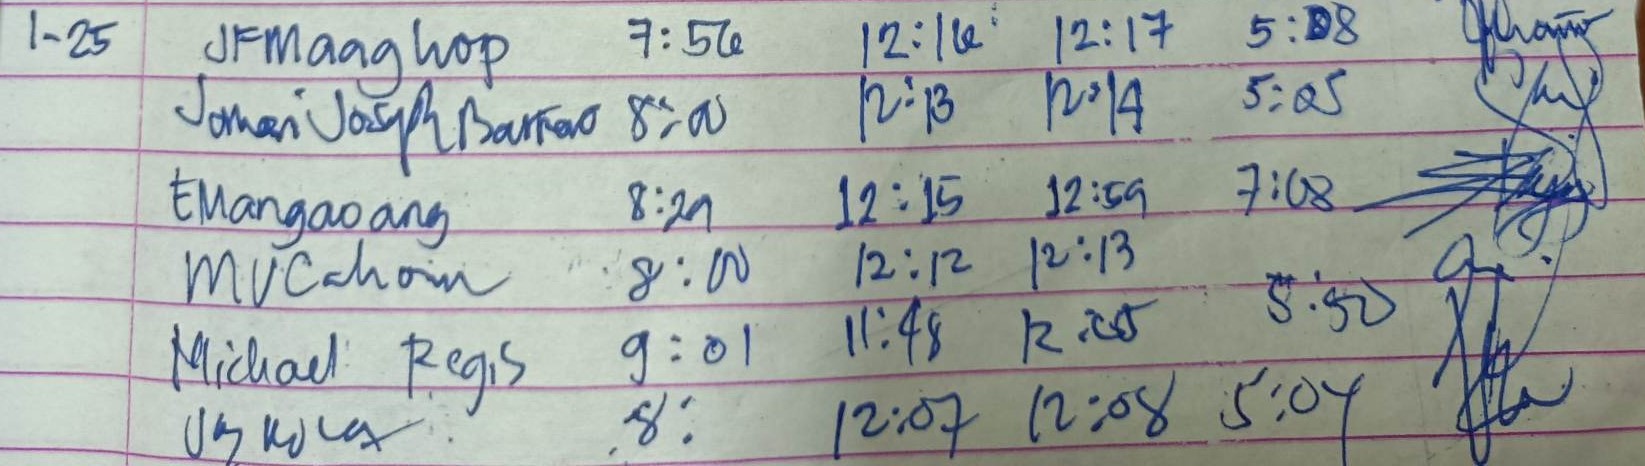 1-25 JFMaaghop 7:56 12:16 12:17 5:08
Jomari Joseph Barrao 8:00 12:13 12:14 5:05
EMangaoang 8:29 12:15 12:59 7:08
MVCahoin 8:00 12:12 12:13
Michael Regis 9:01 11:48 12:05 5:50
8: 12:07 12:08 5:04